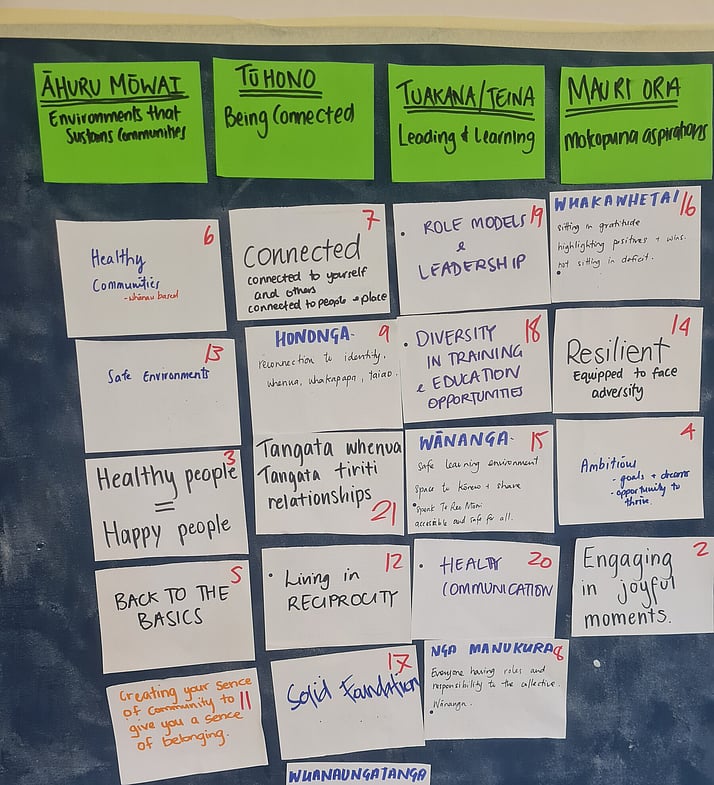 ĀHURU MŌWAI
Environments that
Sustains Communities
6
Healthy
Communities
- whānau based
13
Safe Environments
3
Healthy people
=
Happy people
5
BACK TO THE
BASICS
11
Creating your sence
of community to
give you a sence
of belonging.
TŪHONO
Being Connected
7
Connected
connected to yourself
and others
connected to people + place
9
HONONGA-
reconnection to identity.
whenua, whakapapa, taiao.
Tangata whenua
Tangata tiriti
relationships
21
12
• Living in
RECIPROCITY
17
Solid Foundation
WHANAUNGATANGA
TUAKANA/TEINA
Leading & Learning
19
• ROLE MODELS
&
LEADERSHIP
18
• DIVERSITY
IN TRAINING
& EDUCATION
OPPORTUNITIES
15
WĀNANGA-
Safe learning environment
Space to kōrero + share
• Speak Te Reo Māori
accessible and safe for all.
20
• HEALTHY
COMMUNICATION
8
NGA MANUKURA
Everyone having roles and
responsibility to the collective.
• Wānanga.
MAURI ORA
Mokopuna aspirations
16
WHAKAWHETAI
sitting in gratitude
highlighting positives + wins.
not sitting in deficit.
14
Resilient
Equipped to face
adversity
4
Ambitious
- goals + dreams
- opportunity to
thrive.
2
Engaging
in joyful
moments.